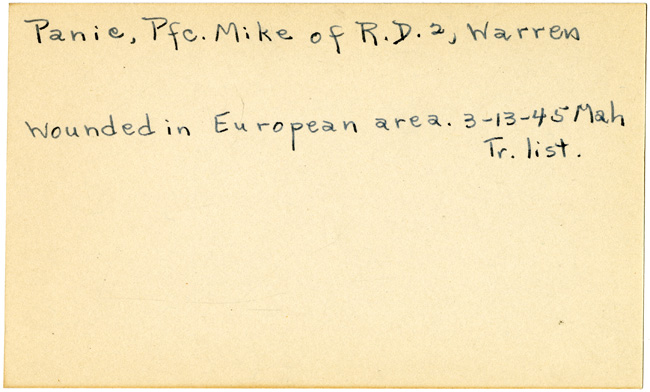 Panic, Pfc. Mike of R.D. 2, Warren
Wounded in European area. 3-13-45 Mah
Tr. list.